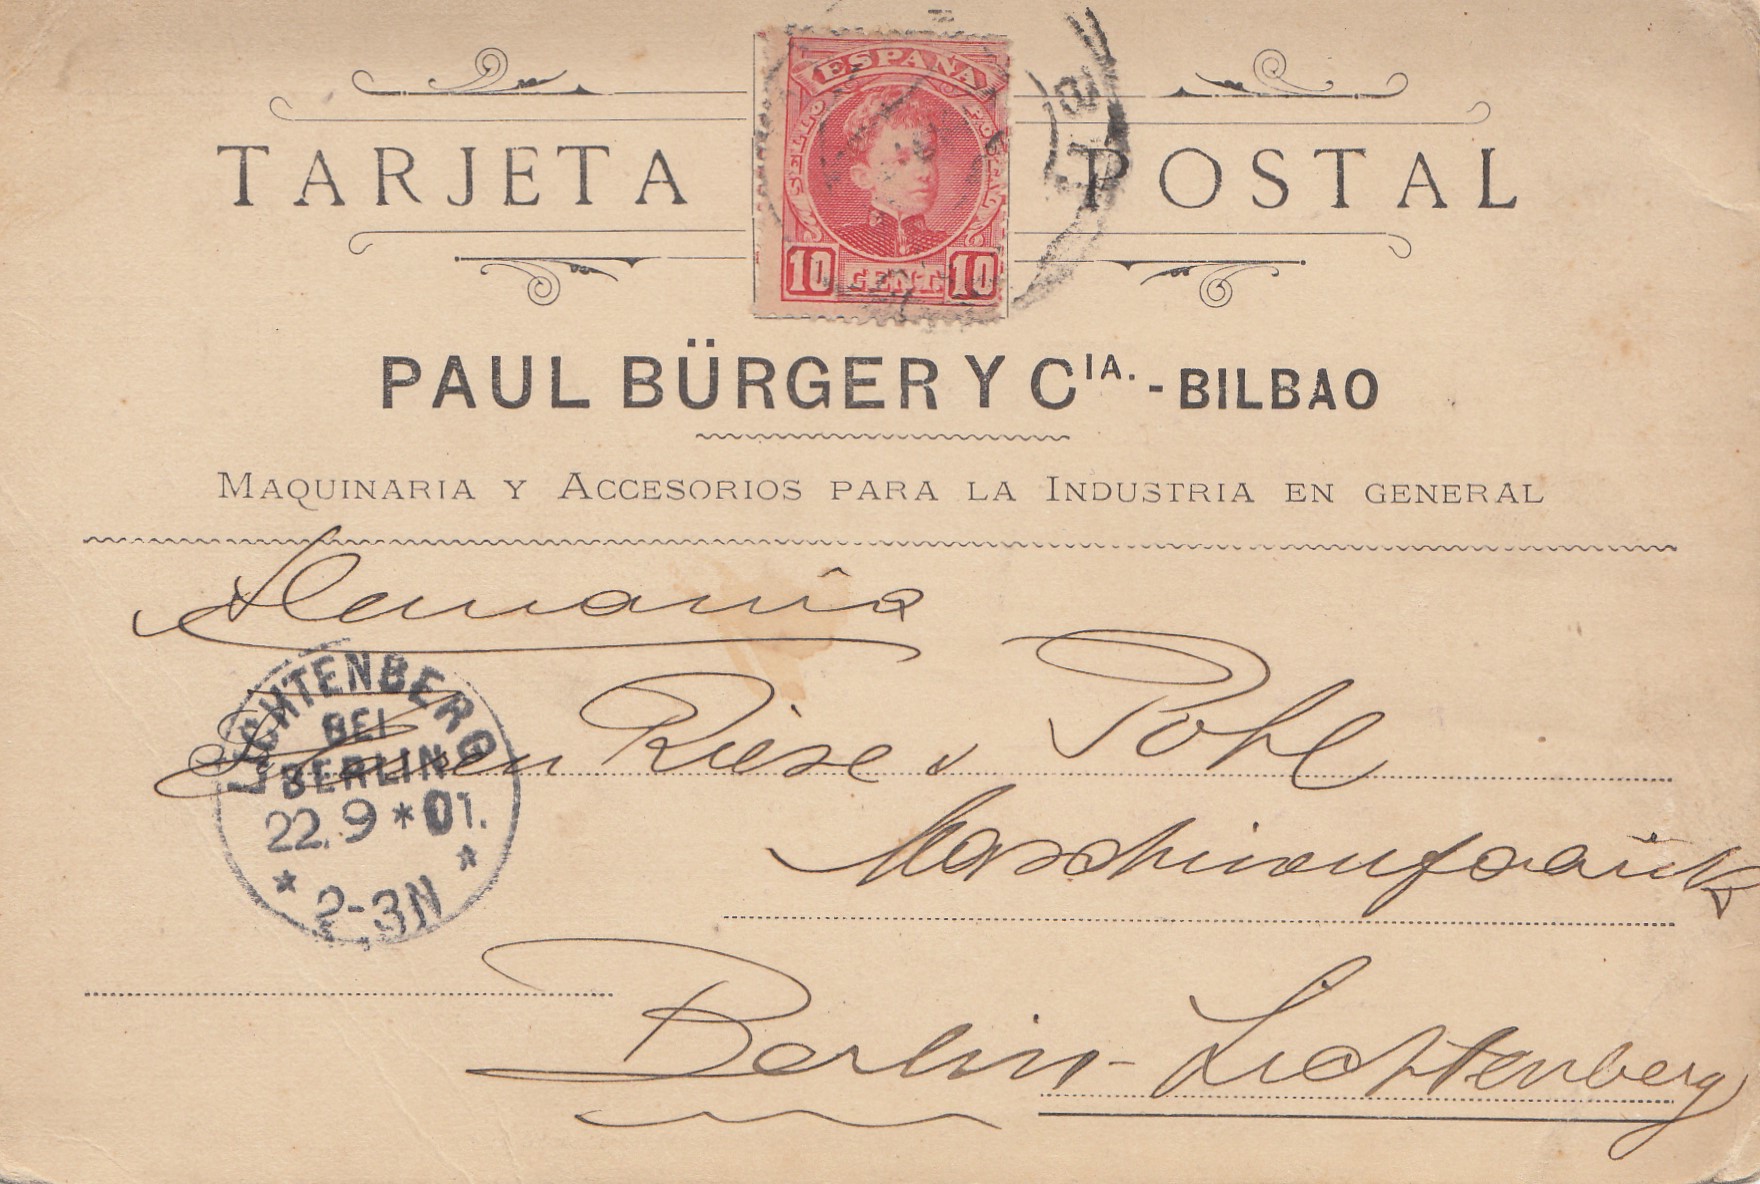 ESPAÑA
SELLO POSTAL
10 CENT. 10
TARJETA POSTAL
PAUL BÜRGER Y CIA. - BILBAO
MAQUINARIA Y ACCESORIOS PARA LA INDUSTRIA EN GENERAL
Alemania
Riese & Pohl
Maschinenfabrik
Berlin-Lichtenberg
LICHTENBERG
BEI
BERLIN
22.9*01.
* 2-3N *